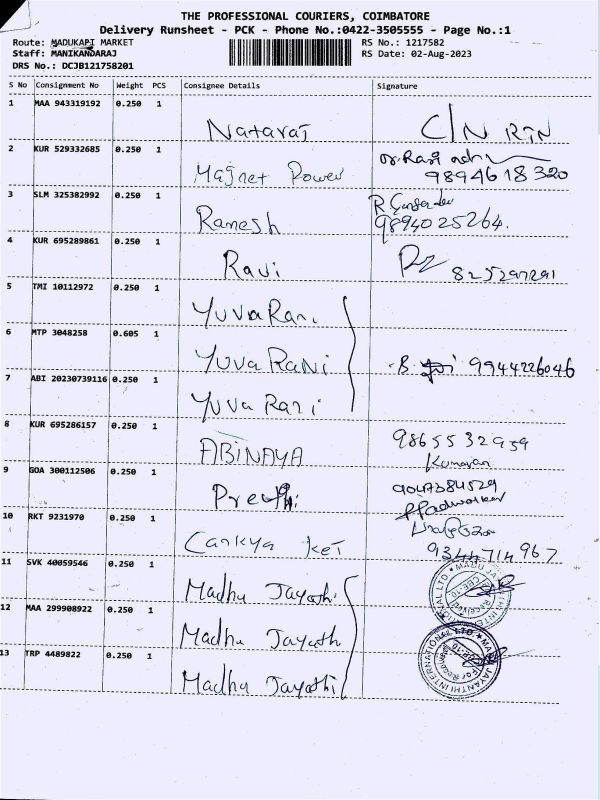 THE PROFESSIONAL COURIERS, COIMBATORE
Delivery Runsheet - PCK - Phone No.:0422-3505555 - Page No.:1
Route: MADUKAPI MARKET RS No.: 1217582
Staff: MANIKANDARAJ RS Date: 02-Aug-2023
DRS No.: DCJB121758201
S No Consignment No Weight PCS Consignee Details Signature
1 MAA 943319192 0.250 1
Nataraj C/N RTN
2 KUR 529332685 0.250 1
Magnet Power 9894618320
3 SLM 325382992 0.250 1
Ramesh 9894025264.
4 KUR 695289861 0.250 1
Ravi 825297291
5 TMI 10112972 0.250 1
Yuva Rani
6 MTP 3048258 0.605 1
Yuva RANi B. 9944226046
7 ABI 20230739116 0.250 1
Yuva Rani
8 KUR 695286157 0.250 1
ABINAYA 9865532959
Kumaran
9 GOA 300112506 0.250 1
Preethi 9047384529
10 RKT 9231970 0.250 1
9344714967
11 SVK 40059546 0.250 1
Madhu Jayathi
12 MAA 299908922 0.250 1
Madhu Jayath
13 TRP 4489822 0.250 1
Madhu Jayathi
MADHU JAYANTHI INTERNATIONAL LTD.